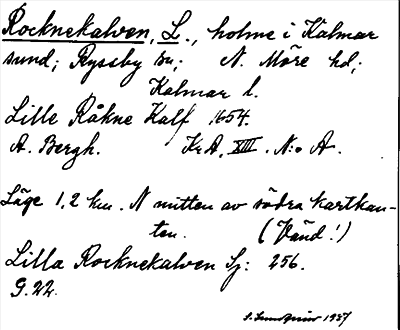 Rocknekalven, L., holme i Kalmar
sund; Ryssby sn; N. Möre hd;
Kalmar l.
Lille Råkne Kalf 1654.
A. Bergh. KrA, XIII. N:o A.
Läge 1,2 km. N mitten av södra kartkan-
ten. (Vänd!)
Lilla Rocknekalven Sj: 256.
G.22.
1937